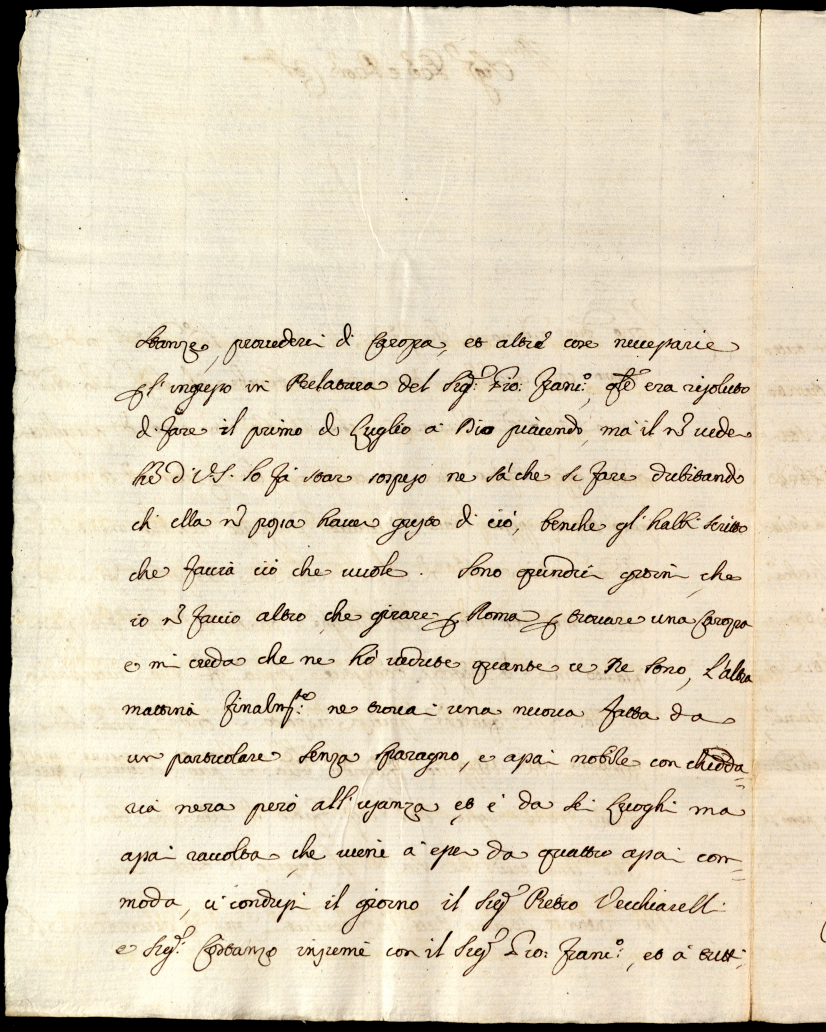 stanze, provederci di Carozza, et altre cose necessarie
p l'ingresso in Prelatura del Sigr. Gio: Franc.o, qle era risoluto
di fare il primo di Luglio à Dio piacendo, ma il nō veder
di V.S. lo fà star sospeso ne sà che si fare dubitando
ch' ella nō possa haver gusto di ciò, benche gl' habbi scritto
che faccia ciò che vuole. Sono quindici giorni, che
io nō faccio altro, che girare p Roma p trovare una Carozza
e mi creda che ne hò vedute quante ce ne sono, L'altra
mattina finalmte. ne trovai una nuova fatta da
un particolare senza sparagno, e assai nobile con chioda=
ria nera però all' usanza et è da sei Luoghi ma
assai raccolta, che viene à esser da quattro assai com=
moda, ci condussi il giorno il Sigr Pietro Vecchiarelli
e Sigr. Costanzo insieme con il Sigr Gio: Franc.o, et à tutti